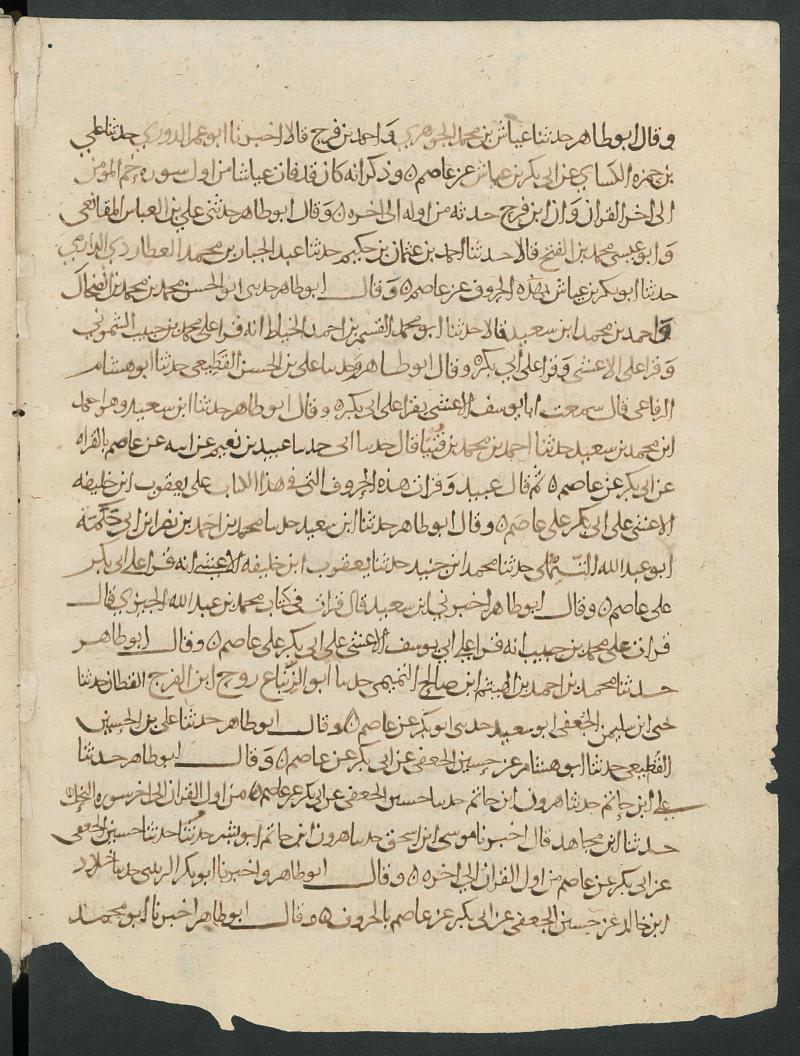 وقال ابو طاهر حدثنا عياش بن محمد الجوهري واحمد بن فرج قالا اخبرنا ابو عمر الدوري حدثنا علي
بن حمزه الكساي عن ابي بكر بن عياش عن عاصم ه وذكر انه كان قد فات عياشا من اول سوره حم المومن
الى اخر القران وان ابن فرج حدثه من اوله الى اخره ه وقال ابو طاهر حدثني علي بن العباس المقانعي
وابو عيسى محمد بن الفتح قالا حدثنا احمد بن عثمان بن حكيم حدثنا عبد الجبار بن محمد العطاردي الدارمي
حدثنا ابو بكر بن عياش بهذه الحروف عن عاصم ه وقال ابو طاهر حدثني ابو الحسن محمد بن محمد بن الضحاك
واحمد بن محمد ابن سعيد قالا حدثنا ابو محمد القسم بن احمد الخياط انه قرا على محمد بن حبيب الشموني
وقرا على الاعشى وقرا على ابي بكر ه وقال ابو طاهر وحدثنا علي بن الحسن القطيعي حدثنا ابو هشام
الرفاعي قال سمعت ابا يوسف الاعشى يقرا على ابي بكر ه وقال ابو طاهر حدثنا ابن سعيد وهو احمد
ابن محمد بن سعيد حدثنا احمد بن محمد بن قال حدثنا ابي حدثنا عبيد بن نعيم عن ابيه عن عاصم بالقراه
عن ابي بكر عن عاصم ه ثم قال عبيد وقرات هذه الحروف التي في هذا الكتاب على يعقوب ابن خليفه
الاعشى على ابي بكر على عاصم ه وقال ابو طاهر حدثنا ابن سعيد حدثنا محمد بن احمد بن نصر ابن ابي حكمه
ابو عبد الله التيملي حدثنا محمد ابن جنيد حدثنا يعقوب ابن خليفه الاعشى انه قرا على ابي بكر
على عاصم ه وقال ابو طاهر اخبرني ابن سعيد قال قرات في كتاب محمد بن عبد الله قال
قرات على محمد بن حبيب انه قرا على ابي يوسف الاعشى على ابي بكر على عاصم ه وقال ابو طاهر
حدثنا محمد بن احمد بن الهيثم ابن صالح التميمي حدثنا ابو الزنباع روح ابن الفرج القطان حدثنا
يحيى ابن سليمن الجعفي ابو سعيد حدثني ابو بكر عن عاصم ه وقال ابو طاهر حدثنا علي بن الحسين
القطيعي حدثنا ابو هشام عن حسين الجعفي عن ابي بكر عن عاصم ه وقال ابو طاهر حدثنا
علي ابن حاتم حدثنا هرون ابن حاتم حدثنا حسين الجعفي عن ابي بكر عن عاصم ه من اول القران الى اخر سوره النحل
حدثنا ابن مجاهد قال اخبرنا موسى ابن اسحق حدثنا هرون ابن حاتم ابو بشر حدثنا حدثنا حسين الجعفي
عن ابي بكر عن عاصم من اول القران الى اخره ه وقال ابو طاهر واخبرنا ابو بكر حدثنا خلاد
ابن خالد عن حسين الجعفي عن ابي بكر عن عاصم بالحروف ه وقال ابو طاهر اخبرنا ابو محمد